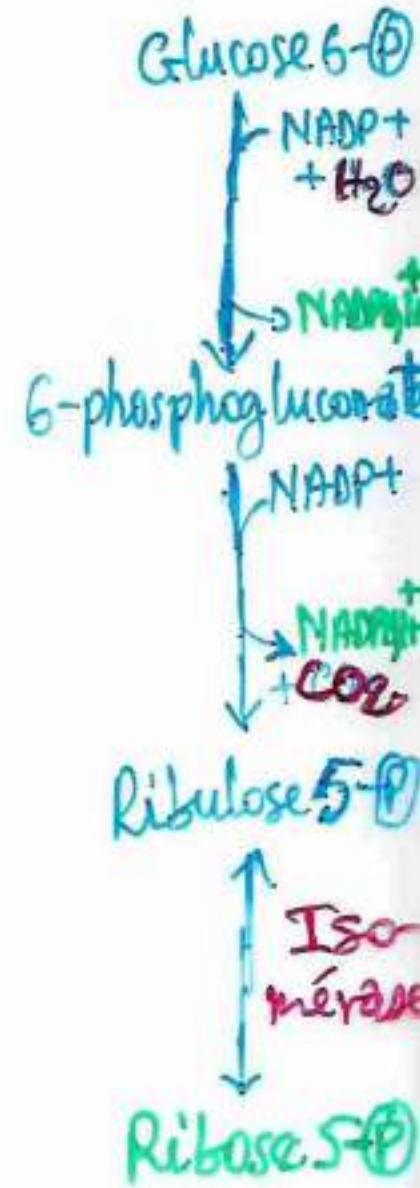 Glucose 6-Ⓟ
NADP+
+ H₂O
6-phosphogluconat
NADP+
+ CO₂
Ribulose 5-Ⓟ
Iso-
mérase
Ribose 5-Ⓟ